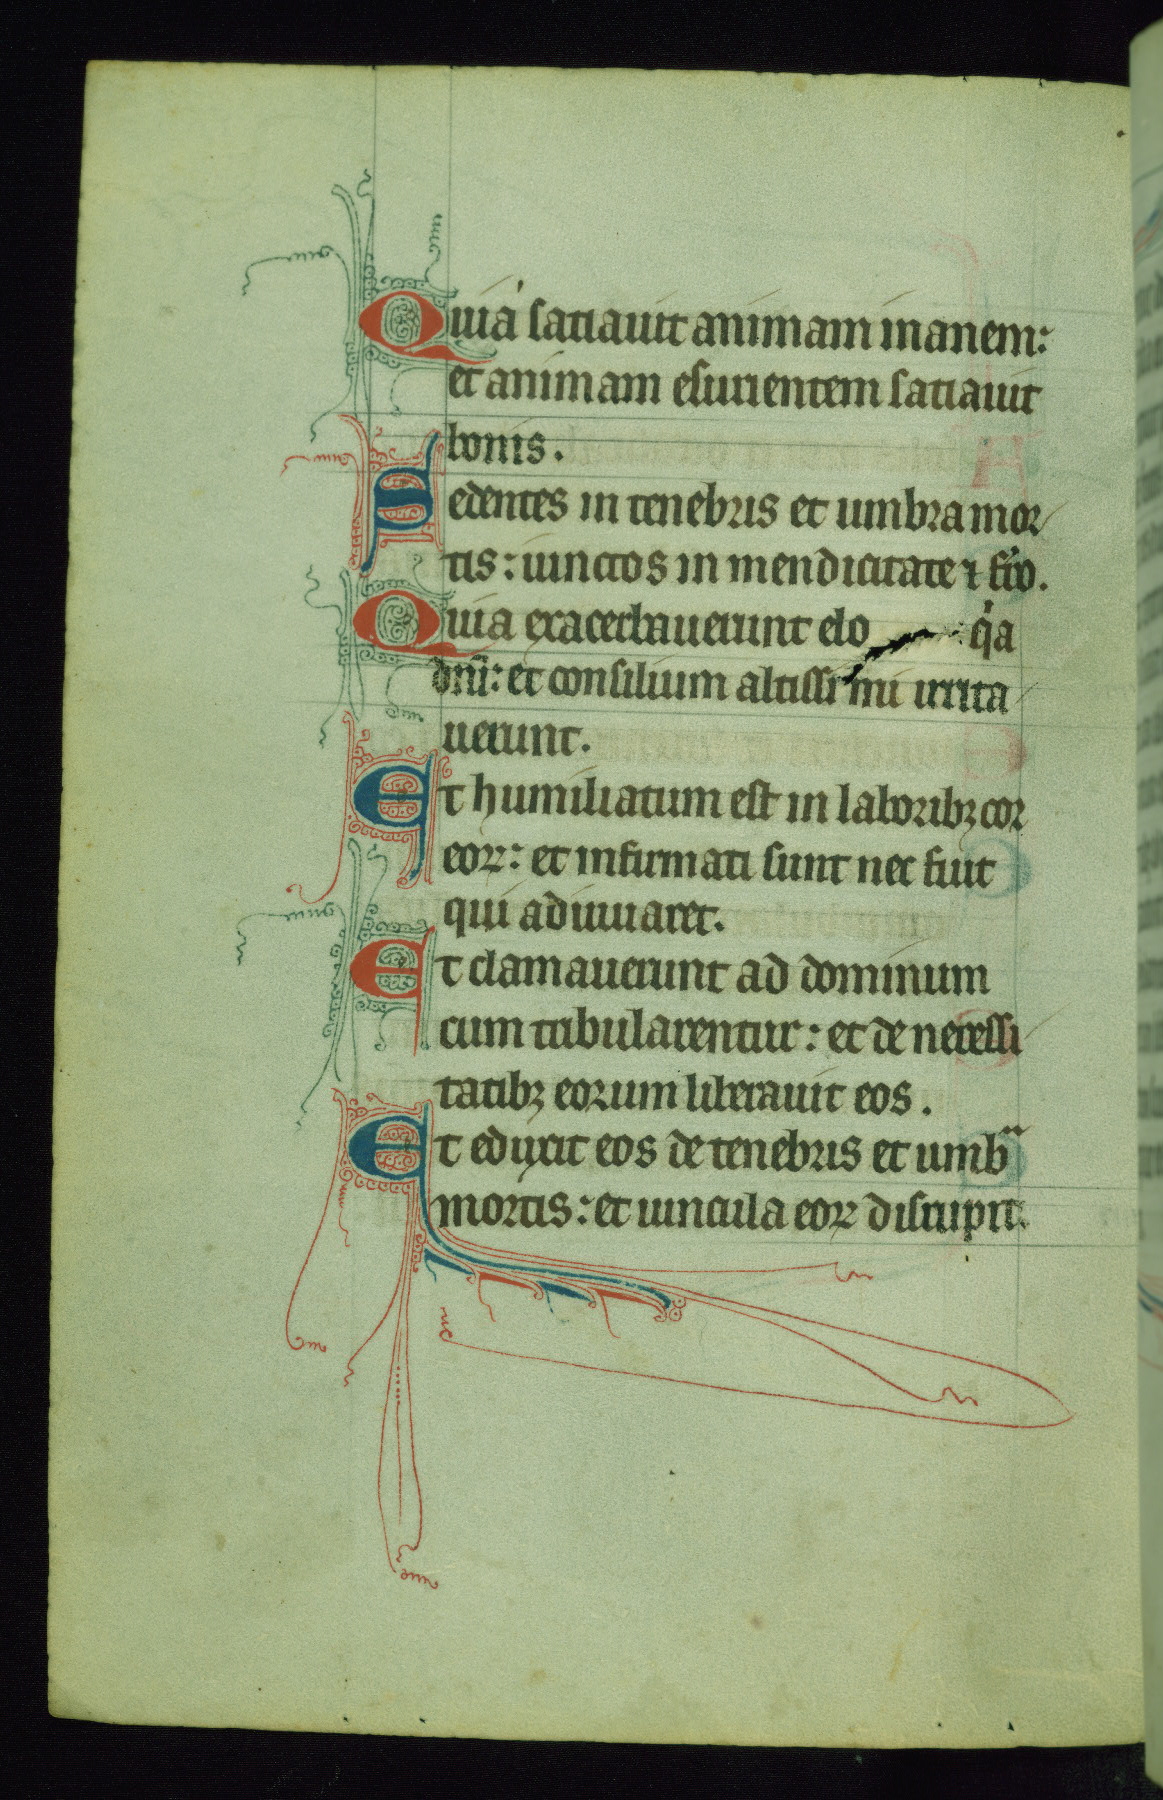 Quia satiauit animam inanem:
et animam esurientem satiauit
bonis.
Sedentes in tenebris et umbra mor
tis: uinctos in mendicitate ⁊ fro.
Quia exacerbauerunt elo qa
dni: et consilium altissimi irrita
uerunt.
Et humiliatum est in laboribꝫ cor
eoꝝ: et infirmati sunt nec fuit
qui adiuuaret.
Et clamauerunt ad dominum
cum tribularentur: et de necessi
tatibꝫ eorum liberauit eos.
Et eduxit eos de tenebris et umb
mortis: et uincula eoꝝ disrupit.